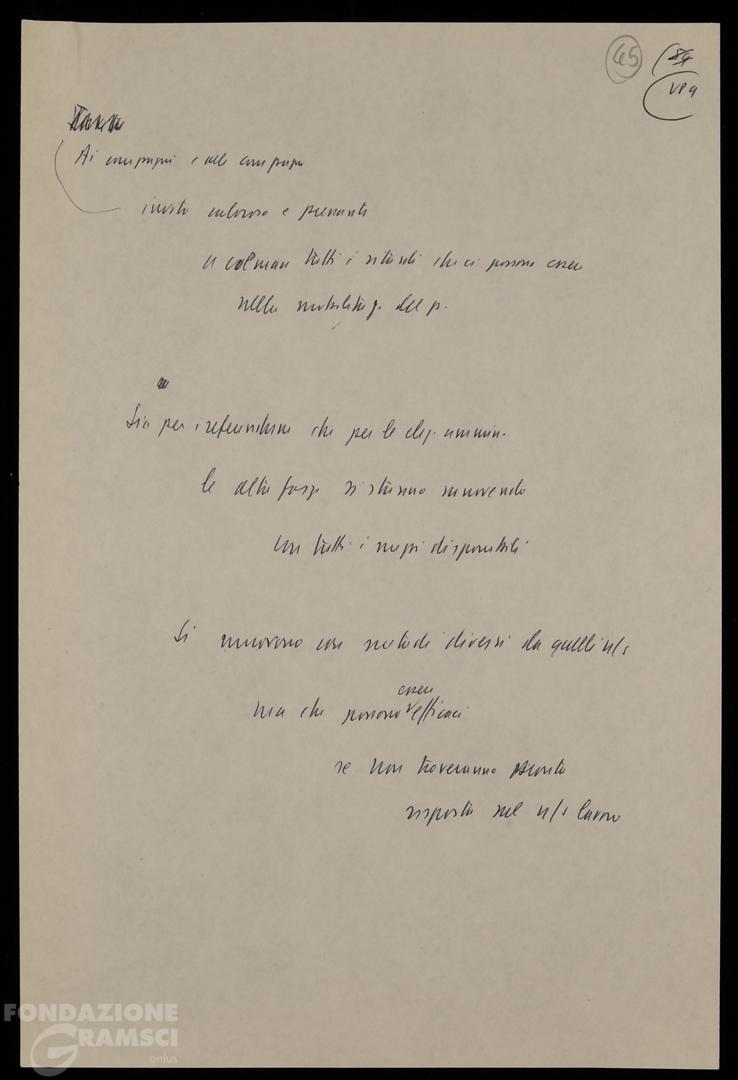 45
Ai compagni e alle compagne
invito caloroso e pressante
a colmare tutti i ritardi che ci possono essere
nella mobilitaz. del p.
Sia per i referendum che per le elez. ammin.
le altre forze si stanno muovendo
con tutti i mezzi disponibili
Si muovono con metodi diversi da quelli n/s
ma che possono essere efficaci
se non troveranno pronta
risposta nel n/s lavoro
FONDAZIONE
GRAMSCI
onlus